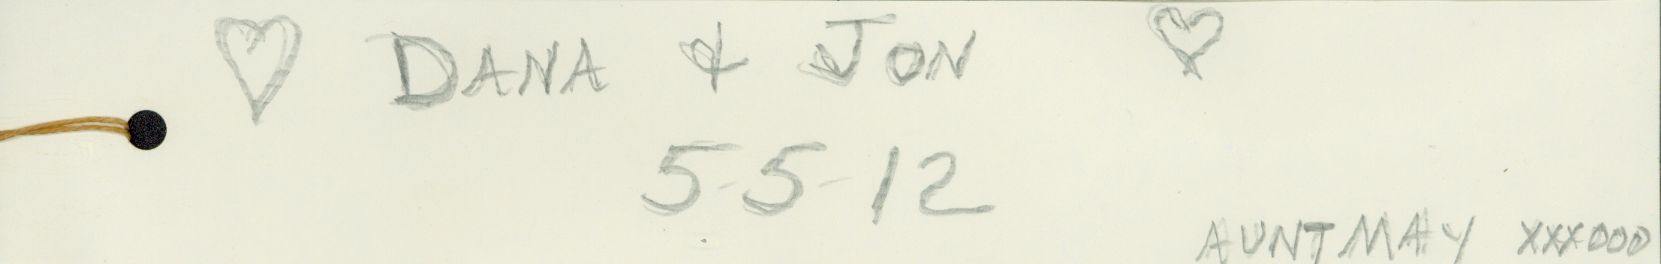 ♡ DANA & JON ♡
5-5-12
AUNT MAY XXXOOO